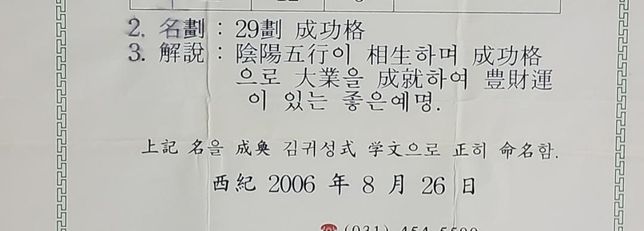 2. 名劃 : 29劃 成功格
3. 解說 : 陰陽五行이 相生하며 成功格
으로 大業을 成就하여 豊財運
이 있는 좋은예명.
上記 名을 成奐 김귀성式 学文으로 正히 命名함.
西紀 2006 年 8 月 26 日